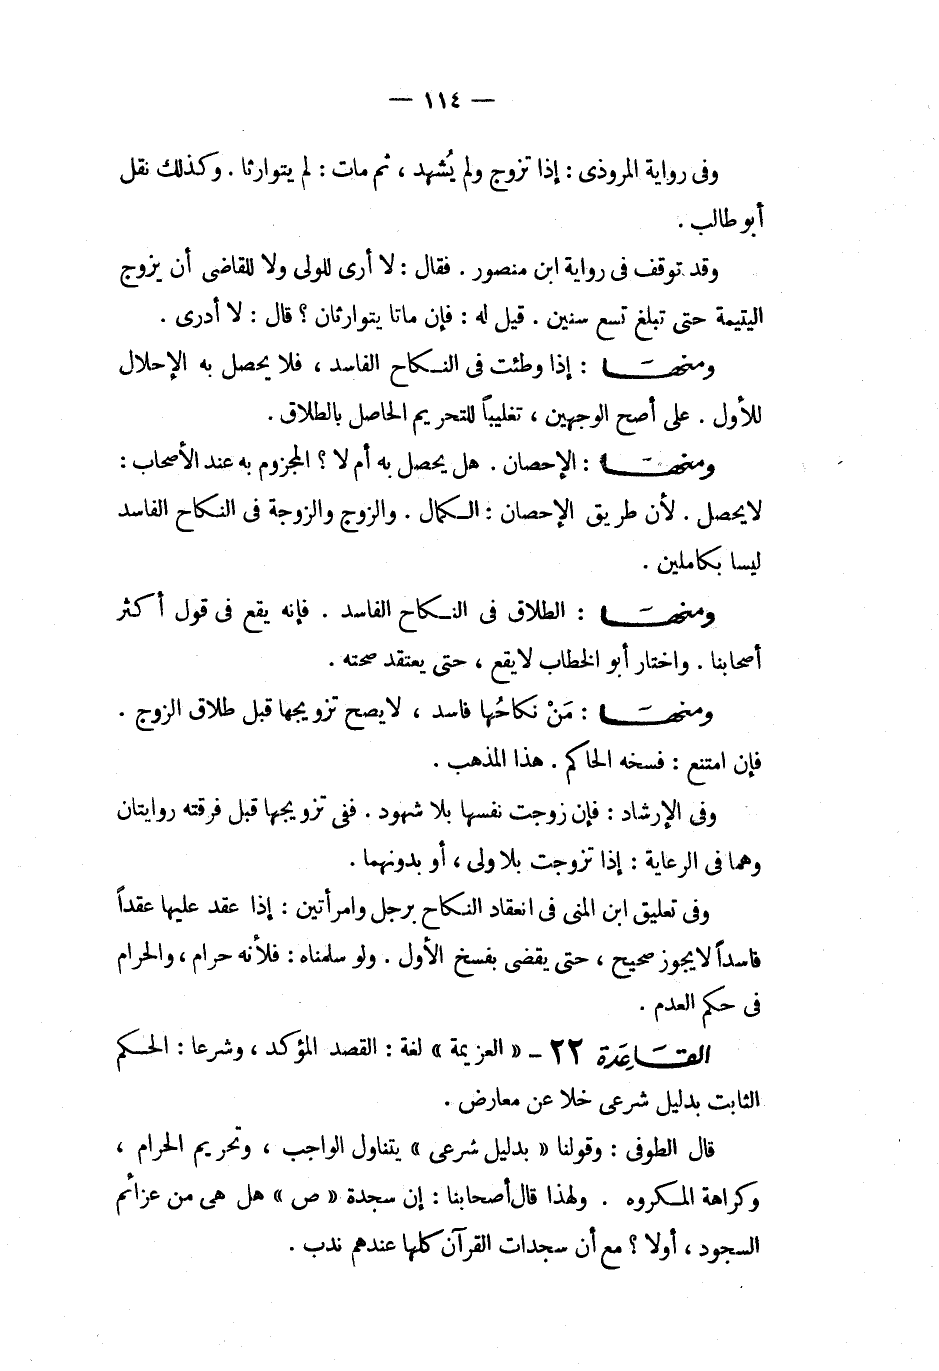 — ١١٤ —
وفى رواية المروذى : إذا تزوج ولم يُشهد ، ثم مات : لم يتوارثا . وكذلك نقل
أبو طالب .
وقد توقف فى رواية ابن منصور . فقال : لا أرى للولى ولا للقاضى أن يزوج
اليتيمة حتى تبلغ تسع سنين . قيل له : فإن ماتا يتوارثان ؟ قال : لا أدرى .
ومنهَا : إذا وطئت فى النكاح الفاسد ، فلا يحصل به الإحلال
للأول . على أصح الوجهين ، تغليباً للتحريم الحاصل بالطلاق .
ومنهَا : الإحصان . هل يحصل به أم لا ؟ المجزوم به عند الأصحاب :
لايحصل . لأن طريق الإحصان : الكمال . والزوج والزوجة فى النكاح الفاسد
ليسا بكاملين .
ومنهَا : الطلاق فى النكاح الفاسد . فإنه يقع فى قول أكثر
أصحابنا . واختار أبو الخطاب لايقع ، حتى يعتقد صحته .
ومنهَا : مَنْ نكاحُها فاسد ، لايصح تزويجها قبل طلاق الزوج .
فإن امتنع : فسخه الحاكم . هذا المذهب .
وفى الإرشاد : فإن زوجت نفسها بلا شهود . ففى تزويجها قبل فرقته روايتان
وهما فى الرعاية : إذا تزوجت بلا ولى ، أو بدونهما .
وفى تعليق ابن المنى فى انعقاد النكاح برجل وامرأتين : إذا عقد عليها عقداً
فاسداً لايجوز صحيح ، حتى يقضى بفسخ الأول . ولو سلمناه : فلأنه حرام ، والحرام
فى حكم العدم .
القَاعِدَة ٢٢ – « العزيمة » لغة : القصد المؤكد ، وشرعا : الحكم
الثابت بدليل شرعى خلا عن معارض .
قال الطوفى : وقولنا « بدليل شرعى » يتناول الواجب ، وتحريم الحرام ،
وكراهة المكروه . ولهذا قال أصحابنا : إن سجدة « ص » هل هى من عزائم
السجود ، أولا ؟ مع أن سجدات القرآن كلها عندهم ندب .